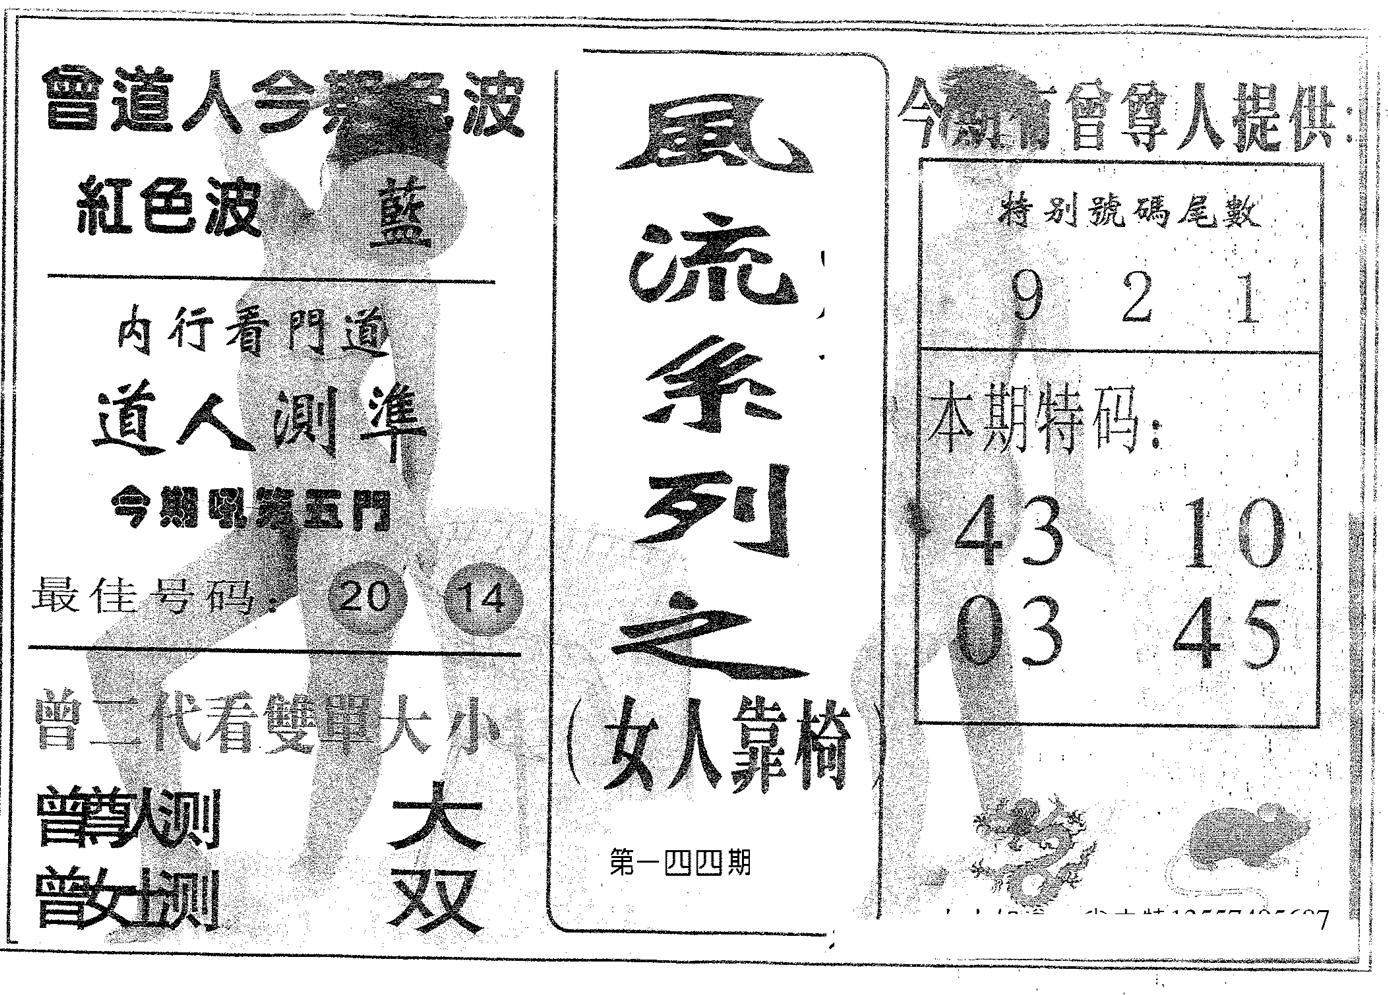 曾道人今期色波
紅色波 藍
内行看門道
道人測準
今期吼第五門
最佳号码: 20 14
曾二代看雙單大小
曾尊人测 大
曾女士测 双
風流系列之
(女人靠椅)
第一四四期
今期有曾尊人提供:
特别號碼尾數
9 2 1
本期特码:
43 10
03 45